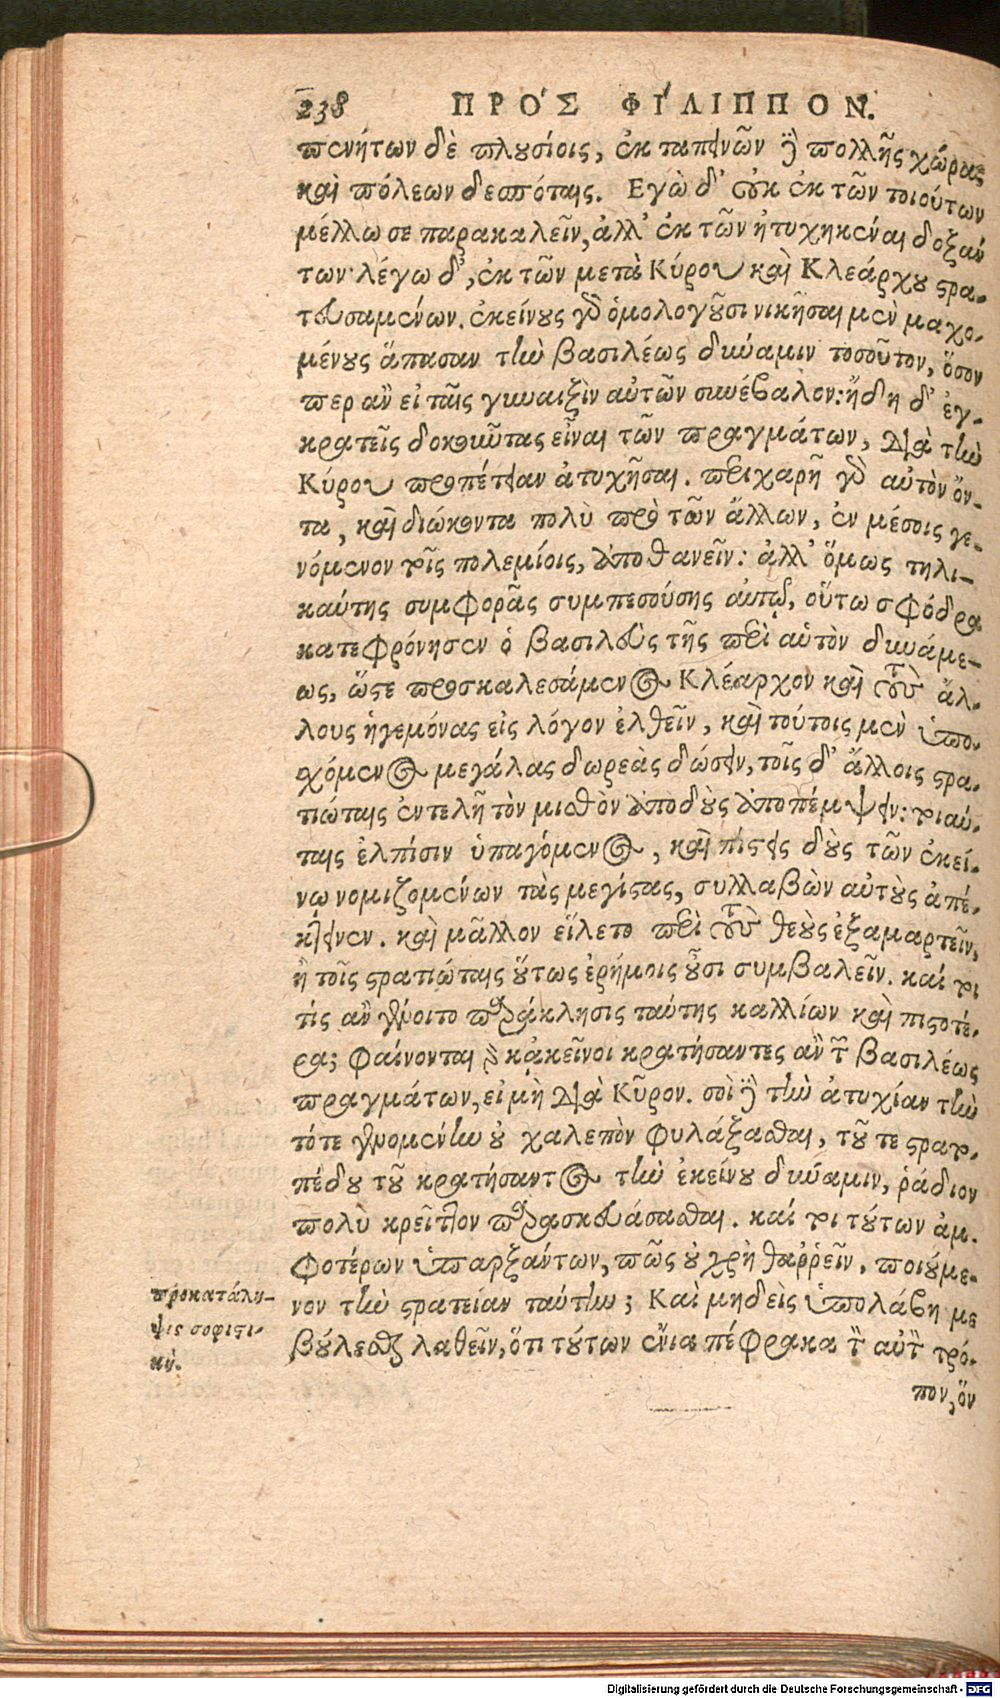 238 ΠΡΟ΄Σ ΦΙ΄ΛΙΠΠΟΝ.
πενήτων δὲ πλουσίοις, ἐκ ταπεινῶν δὲ πολλῆς χώρας
καὶ πόλεων δεσπόταις. Εγὼ δ' οὐκ ἐκ τῶν τοιούτων
μέλλω σε παρακαλεῖν, ἀλλ' ἐκ τῶν ἠτυχηκέναι δοξάν
των· λέγω δ', ἐκ τῶν μετὰ Κύρου καὶ Κλεάρχου στρα-
τευσαμένων. ἐκείνους γὰρ ὁμολογοῦσι νικῆσαι μὲν μαχο-
μένους ἅπασαν τὴν βασιλέως δύναμιν τοσοῦτον, ὅσον
περ ἂν εἰ ταῖς γυναιξὶν αὐτῶν συνέβαλον: ἤδη δ' ἐγ-
κρατεῖς δοκοῦντας εἶναι τῶν πραγμάτων, διὰ τὴν
Κύρου προπέτειαν ἀτυχῆσαι. περιχαρῆ γὰρ αὐτὸν ὄν-
τα, καὶ διώκοντα πολὺ πρὸ τῶν ἄλλων, ἐν μέσοις γε-
νόμενον τοῖς πολεμίοις, ἀποθανεῖν: ἀλλ' ὅμως τηλι-
καύτης συμφορᾶς συμπεσούσης αὐτῷ, οὕτω σφόδρα
κατεφρόνησεν ὁ βασιλεὺς τῆς περὶ αὑτὸν δυνάμε-
ως, ὥστε προσκαλεσάμενος Κλέαρχον καὶ τοὺς ἄλ-
λους ἡγεμόνας εἰς λόγον ἐλθεῖν, καὶ τούτοις μὲν ὑπο-
χόμενος μεγάλας δωρεὰς δώσειν, τοῖς δ' ἄλλοις στρα-
τιώταις ἐντελῆ τὸν μισθὸν ἀποδοὺς ἀποπέμψειν: τοιαύ-
ταις ἐλπίσιν ὑπαγόμενος, καὶ πίστεις δοὺς τῶν ἐκεί-
νῳ νομιζομένων τὰς μεγίστας, συλλαβὼν αὐτοὺς ἀπέ-
κτεινεν. καὶ μᾶλλον εἵλετο περὶ τοὺς θεοὺς ἐξαμαρτεῖν,
ἢ τοῖς στρατιώταις οὕτως ἐρήμοις οὖσι συμβαλεῖν. καί τοι
τίς ἂν γένοιτο παράκλησις ταύτης καλλίων καὶ πιστοτέ-
ρα; φαίνονται γὰρ κἀκεῖνοι κρατήσαντες ἂν τῶν βασιλέως
πραγμάτων, εἰ μὴ διὰ Κῦρον. σοὶ δὲ τὴν ἀτυχίαν τὴν
τότε γενομένην οὐ χαλεπὸν φυλάξασθαι, τοῦ τε στρατο-
πέδου τοῦ κρατήσαντος τὴν ἐκείνου δύναμιν, ῥάδιον
πολὺ κρεῖττον παρασκευάσασθαι. καί τοι τούτων ἀμ-
φοτέρων ὑπαρξάντων, πῶς οὐ χρὴ θαῤῥεῖν, ποιούμε-
νον τὴν στρατείαν ταύτην; Καὶ μηδεὶς ὑπολάβῃ με
βούλεσθαι λαθεῖν, ὅτι τούτων ἔνια πέφρακα τὸν αὐτὸν τρό-
πον, ὃν
προκατάλη-
ψις σοφιστι-
κή.
Digitalisierung gefördert durch die Deutsche Forschungsgemeinschaft - DFG